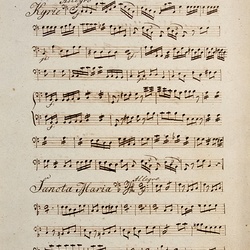 Allegro
Kyrie
Sancta Maria Allegro